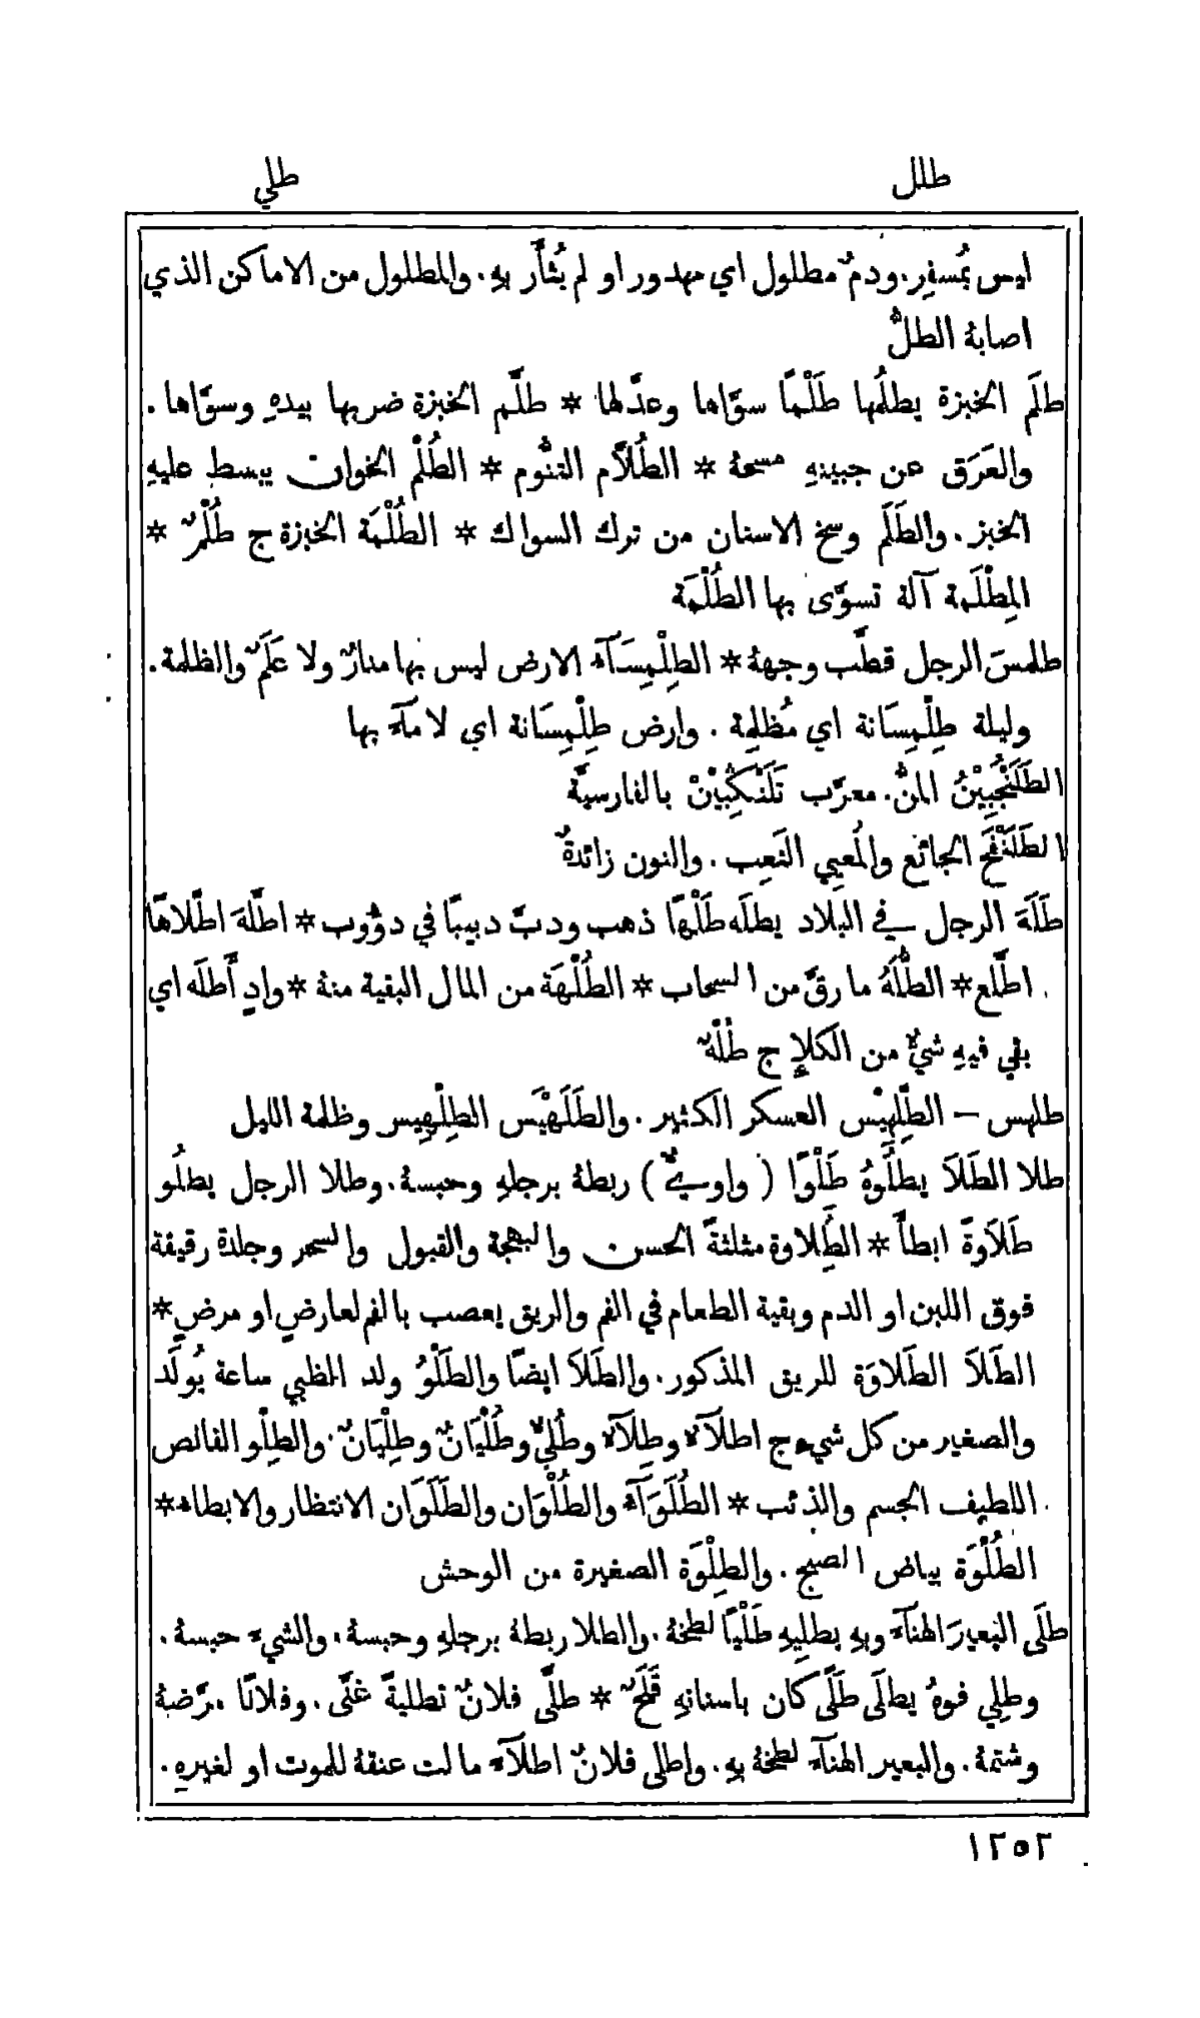 طلل
طلي
ليس بمُسفِر. ودمٌ مطلول اي مهدور او لم يُثأَر بهِ. والمطلول من الاماكن الذي
اصابهُ الطلُّ
طلَم الخبزة يطلُمها طَلْمًا سوَّاها وعدَّلها * طلَّم الخبزة ضربها بيدهِ وسوَّاها.
والعَرَق عن جبينهِ مسحهُ * الطُلاَّم التنُّوم * الطُلْم الخوان يبسط عليهِ
الخبز. والطَلَم وسخ الاسنان من ترك السواك * الطُلْمَة الخبزة ج طُلْمٌ *
المِطْلَمة آلة تسوَّى بها الطُلْمَة
طلمسَ الرجل قطَّب وجههُ * الطِلْمِسَآءَ الارض ليس بها منارٌ ولا عَلَمٌ والظلمة.
وليلة طِلْمِسَانة اي مُظلِمة. وارض طِلْمِسَانة اي لا مآءَ بها
الطَلَنْجُبِيْنُ المنُّ. معرَّب تَلَنْكُبِيْنْ بالفارسيَّة
الطَلَنْفَح الجائع والمُعيي التَعِب. والنون زائدةٌ
طَلَهَ الرجل في البلاد يطلَه طَلْهًا ذهب ودبَّ دبيبًا في دؤُوب * اطَّلهَ اطّلاهًا
اطَّلع * الطُلَّهُ ما رقَّ من السحاب * الطُلْهَة من المال البقية منهُ * وادٍ أَطلَه اي
بقي فيهِ شيءٌ من الكلإِ ج طُلْهٌ
طلهس – الطِّلِهِيْس العسكر الكثير. والطَلَهْيَس الطِلْهِيس وظلمة الليل
طلا الطَلاَ يطلُوهُ طَلْوًا (واويٌّ) ربطهُ برجلهِ وحبسهُ. وطلا الرجل يطلُو
طَلاَوةً ابطأَ * الطِلاوة مثلثةً الحسن والبهجة والقبول والسحر وجلدة رقيقة
فوق اللبن او الدم وبقية الطعام في الفم والريق يعصب بالفم لعارضٍ او مرضٍ *
الطَلاَ الطَلاوَة للريق المذكور. والطَلاَ ايضًا والطَلْوُ ولد الظبي ساعة يُولَد
والصغير من كل شيءٍ ج اطلآءٌ وطِلآءٌ وطُلِيٌّ وطُلْيَانٌ وطِلْيَانٌ. والطِلْو القانص
اللطيف الجسم والذئب * الطُلَوَآءَ والطُلْوَان والطَلَوَان الانتظار والابطاء *
الطُلْوَة بياض الصبح. والطِلْوَة الصغيرة من الوحش
طلَى البعيرَ الهنآءَ وبهِ يطلِيهِ طَلْيًا لطخهُ. والطلا ربطهُ برجلهِ وحبسهُ. والشيءَ حبسهُ.
وطلِي فوهُ يطلَى طَلًى كان باسنانهِ قَلَحٌ * طلَّى فلانٌ تطليةً غنَّى. وفلانًا مرَّضهُ
وشتمهُ. والبعير الهنآءَ لطخهُ بهِ. واطلى فلانٌ اطلآءَ مالت عنقهُ للموت او لغيرهِ.
١٢٥٢